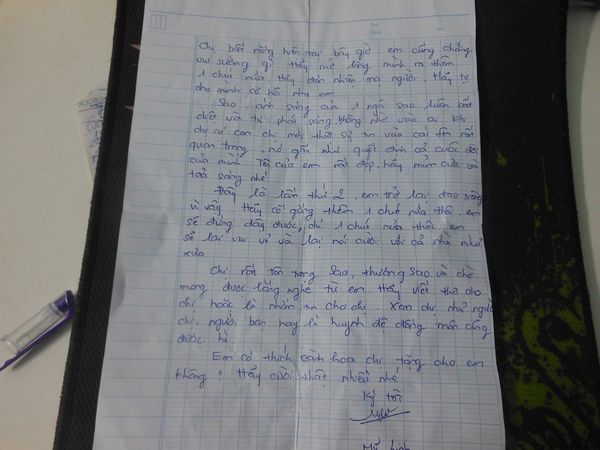 Chị biết rằng hiện tại bây giờ em cũng chẳng
vui sướng gì. Hãy mở lòng mình ra thêm
1 chút nữa hãy đón nhận mọi người. Hãy tự
cho mình cơ hội nha em
Sao, ánh sáng của 1 ngôi sao luôn bất
diệt và tự phát sáng không nhờ vào ai. Khi
chị có con chị mới thật sự tin vào cái tên rất
quan trọng, nó gần như quyết định cả cuộc đời
của mình. Tên của em rất đẹp, hãy mỉm cười và
toả sáng nhé!
Đây là lần thứ 2 em trở lại
vì vậy hãy cố gắng thêm 1 chút nữa thôi em
sẽ đứng dậy được, chỉ 1 chút nữa thôi em
sẽ lại vui vẻ và lại nói cười với cả nhà như
xưa.
Chị rất tôn trọng Sao, thương Sao và chờ
mong được lắng nghe từ em. Hãy viết thư cho
chị hoặc là nhắn tin cho chị. Xem chị như người
chị, người bạn hay là huynh đệ đồng môn cũng
được hì
Em có thích cành hoa chị tặng cho em
không? Hãy cười thật nhiều nhé
Ký tên